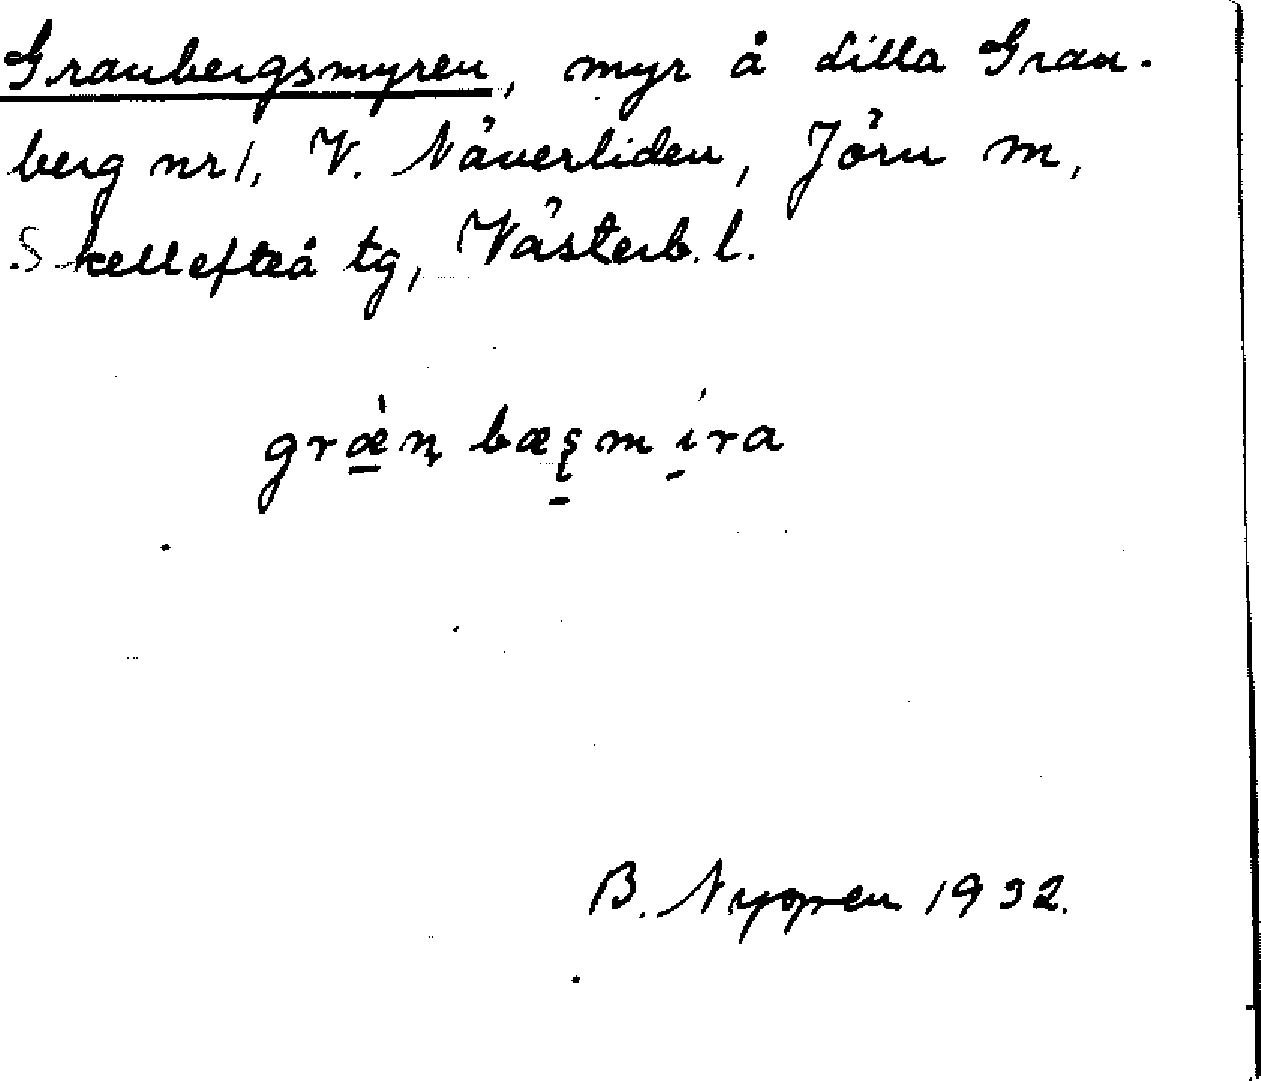 Granbergsmyren, myr å Lilla Gran-
berg nr 1, V. Näverliden, Jörn m,
Skellefteå tg, Västerb. l.
græ̀n bæșmíra
B. Nygren 1932.